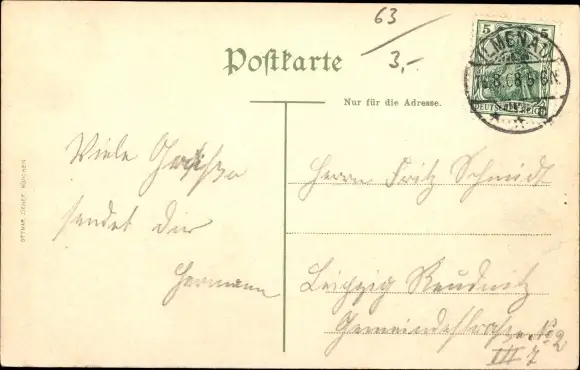 63
3,-
Postkarte
5 5
ILMENAU
8.08.5-6N.
DEUTSCHES REICH
Nur für die Adresse.
OTTMAR ZIEHER, MÜNCHEN
Viele Grüße
sendet Dir
Hermann
Herrn Fritz Schmidt
Leipzig Reudnitz
Gemeindestrasse No 2
III 7